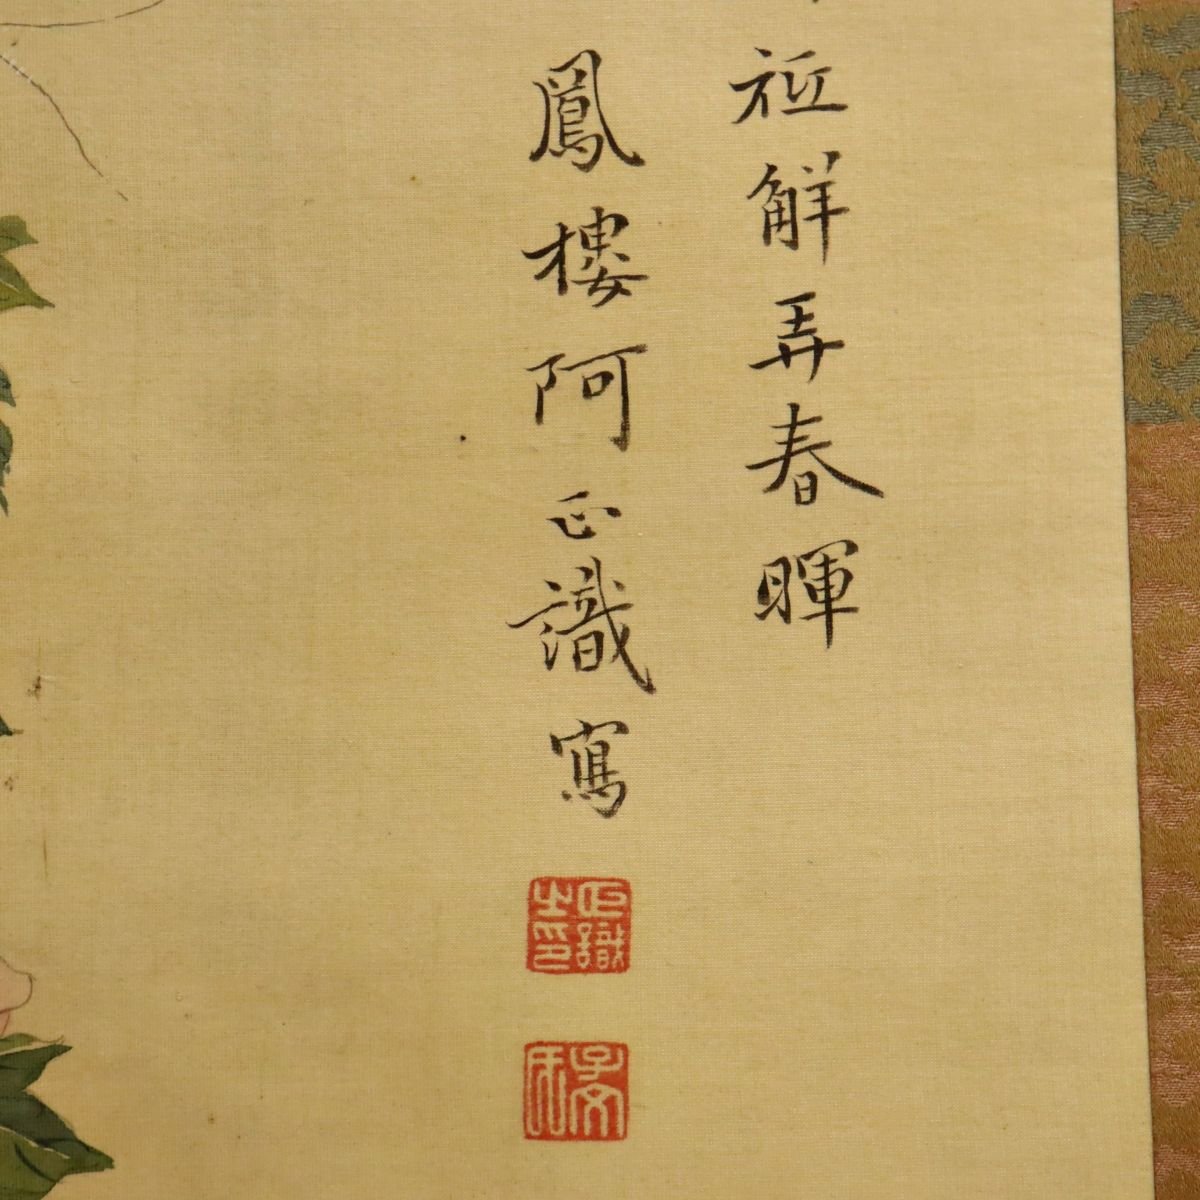 祗解弄春暉
鳳樓阿正識寫
正識之印